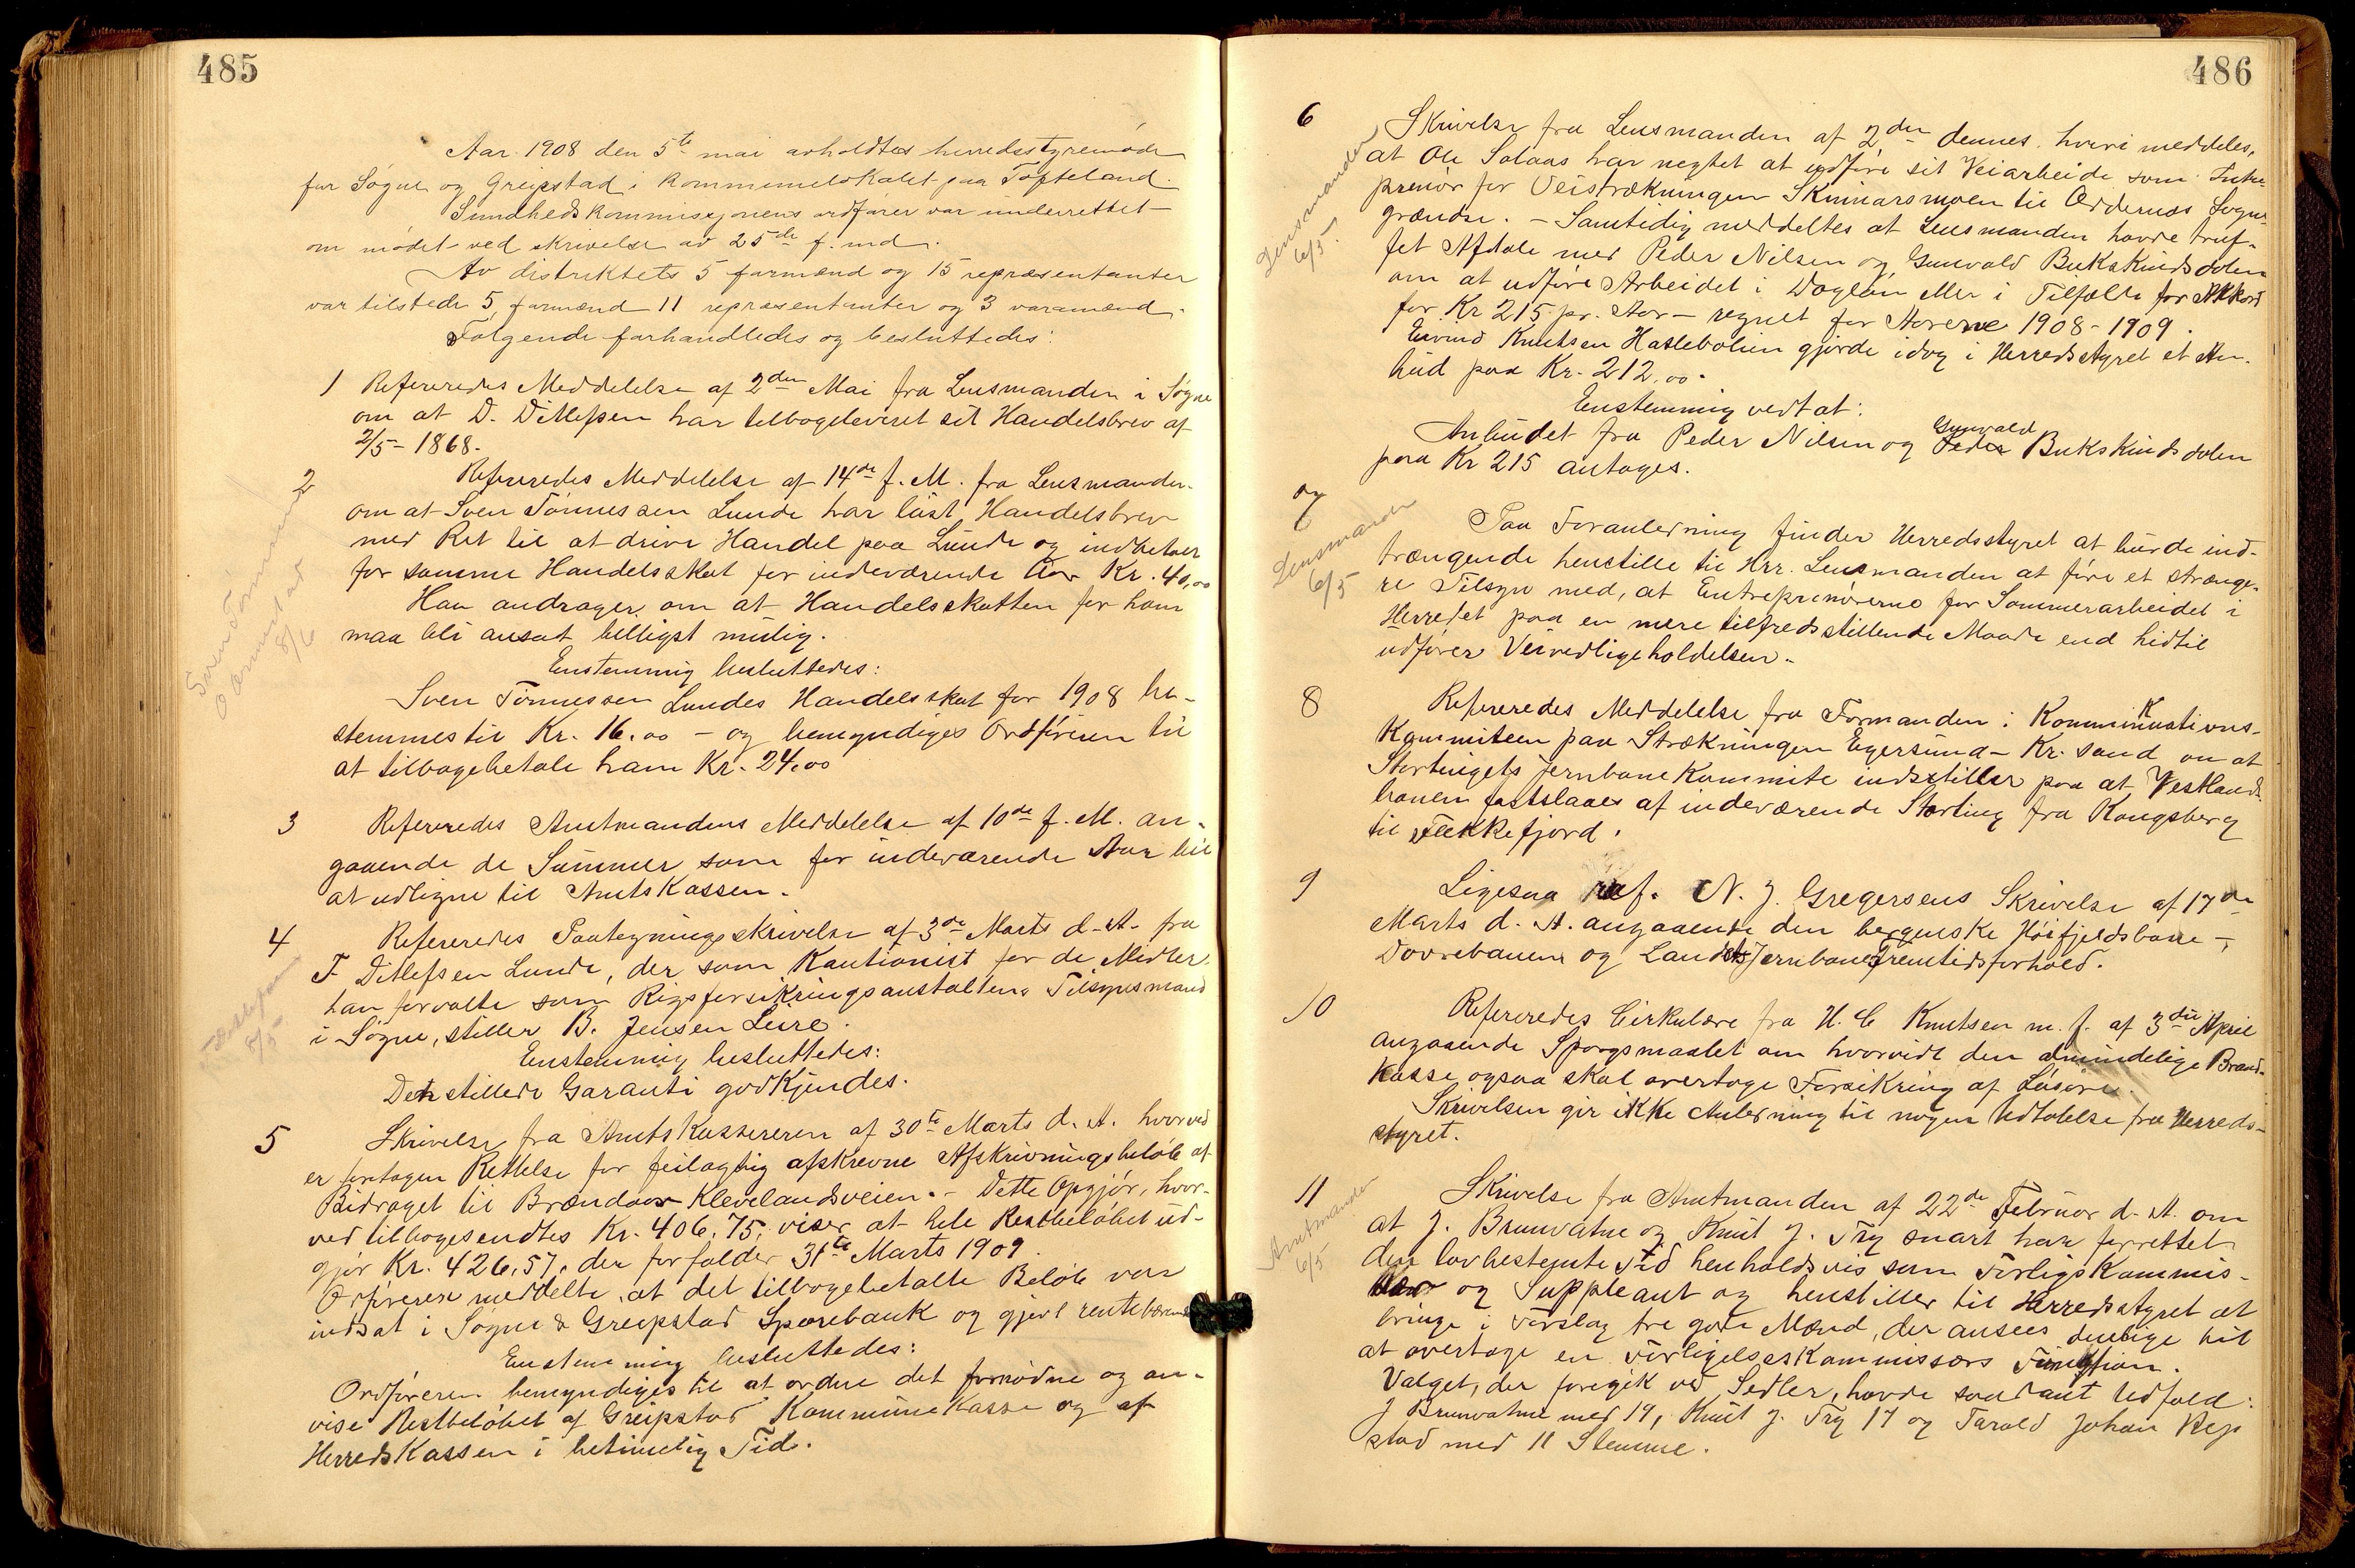 485
Aar 1908 den 5te mai avholdtes herredsstyremøde
for Søgne og Greipstad i kommunelokalet paa Tofteland.
Sundhedskommissjonens ordfører var underrettet
om mødet ved skrivelse av 25de f. md.
Av distriktets 5 formænd og 15 repræsentanter
var tilstede 5 formænd 11 repræsentanter og 3 varamænd.
Følgende forhandledes og besluttedes:
1 Refereredes Meddelelse af 2den Mai fra Lensmanden i Søgne
om at D. Ditlefsen har tilbageleveret sit Handelsbrev af
2/5-1868.
2 Refereredes Meddelelse af 14de f. M. fra Lensmanden
om at Sven Tönnessen Lunde har löst Handelsbrev
med Ret til at drive Handel paa Lunde og indbetalt
for samme Handelsskat for indeværende Aar Kr. 40,00
Han andrager om at Handelsskatten for ham
maa bli ansat billigst mulig.
Enstemmig besluttedes:
Sven Tönnessen Lundes Handelsskat for 1908 be-
stemmes til Kr. 16.00 - og bemyndiges Ordföreren til
at tilbagebetale ham Kr. 24.00
8/6
3 Refereredes Amtmandens Meddelelse af 10de f. M. an-
gaaende de Summer som for indeværende Aar blir
at udligne til Amtskassen.
4 Refereredes Paategningsskrivelse af 3de Marts d. A. fra
F Ditlefsen Lunde, der som Kautionist for de Midler
han forvalte som Rigsforsikringsanstaltens Tilsynsmand
i Søgne, stiller B. Jensen Leire.
Enstemmig besluttedes:
Den stillede Garanti godkjendes.
8/5
5 Skrivelse fra Amtskassereren af 30te Marts d. A. hvorved
er foretagen Rettelse for feilagtig afskrevne Afskrivningsbelöb af
Bidraget til Brændaas-Klevelandsveien. - Dette Opgjör, hvor-
ved tilbagesendtes Kr. 406,75, viser at hele Restbelöbet ud-
gjör Kr. 426,57, der forfalder 31te Marts 1909.
Ordföreren meddelte at det tilbagebetalte Belöb var
indsat i Søgne & Greipstad Sparebank og gjort rentebærende
Enstemmig besluttedes:
Ordföreren bemyndiges til at ordne det fornödne og an-
vise Restbelöbet af Greipstad Kommunekasse og af
Herredskassen i betimelig Tid.
486
6 Skrivelse fra Lensmanden af 2den dennes, hvori meddeles,
at Ole Solaas har negtet at udföre sit Veiarbeide som Entre-
prenör for Veistrækningen Skinnarsmoen til Oddernæs Sogne-
grændse. - Samtidig meddeltes at Lensmanden havde truf-
fet Aftale med Peder Nilsen og Gunvald Bukskindsdalen
om at udföre Arbeidet i Daglön eller i Tilfælde for Akkord
for Kr 215 pr. Aar - regnet for Aarene 1908-1909.
Eivind Knutsen Haslebolien gjorde idag i Herredsstyret et An-
bud paa Kr. 212,00.
Enstemmig vedtat:
Anbudet fra Peder Nilsen og Gunvald Bukskindsdalen
paa Kr 215 antages.
Lensmanden
6/5.
7 Paa Foranledning finder Herredsstyret at burde ind-
trængende henstille til Hrr. Lensmanden at före et strænge-
re Tilsyn med, at Entreprenörerne for Sommerarbeidet i
Herredet paa en mere tilfredsstillende Maade end hidtil
udfører Veivedligeholdelsen.
Lensmanden
6/5
8 Refereredes Meddelelse fra Formanden i Kommunikations-
Kommiteen paa Strækningen Egersund - Kr. sand om at
Stortingets Jernbanekommite indstiller paa at Vestlands-
banen fastslaaes af indeværende Storting fra Kongsberg
til Flekkefjord.
9 Ligesaa ref. N. J. Gregersens Skrivelse af 17de
Marts d. A. angaaende den bergenske Höifjeldsbane -,
Dovrebanen og Landets Jernbanefremtidsforhold.
10 Refereredes Cirkulære fra H. C Knutsen m. f. af 3die April
angaaende Spørgsmaalet om hvorvidt den almindelige Brand-
kasse ogsaa skal overtage Forsikring af Lösöre.
Skrivelsen gir ikke Anledning til nogen Udtalelse fra Herreds-
styret.
11 Skrivelse fra Amtmanden af 22de Februar d. A. om
at J. Brunvatne og Knut J. Try snart har forrettet
den lovbestemte Tid henholdsvis som Forligskommis-
sær og Suppleant og henstiller til Herredsstyret at
bringe i Forslag tre gode Mænd, der ansees duelige til
at overtage en Forligelseskommissærs Funktion.
Valget, der foregik ved Sedler, havde saadant Udfald:
J Brunvatne med 19, Knut J. Try 17 og Tarald Johan Rep
stad med 11 Stemme.
Amtmanden
6/5